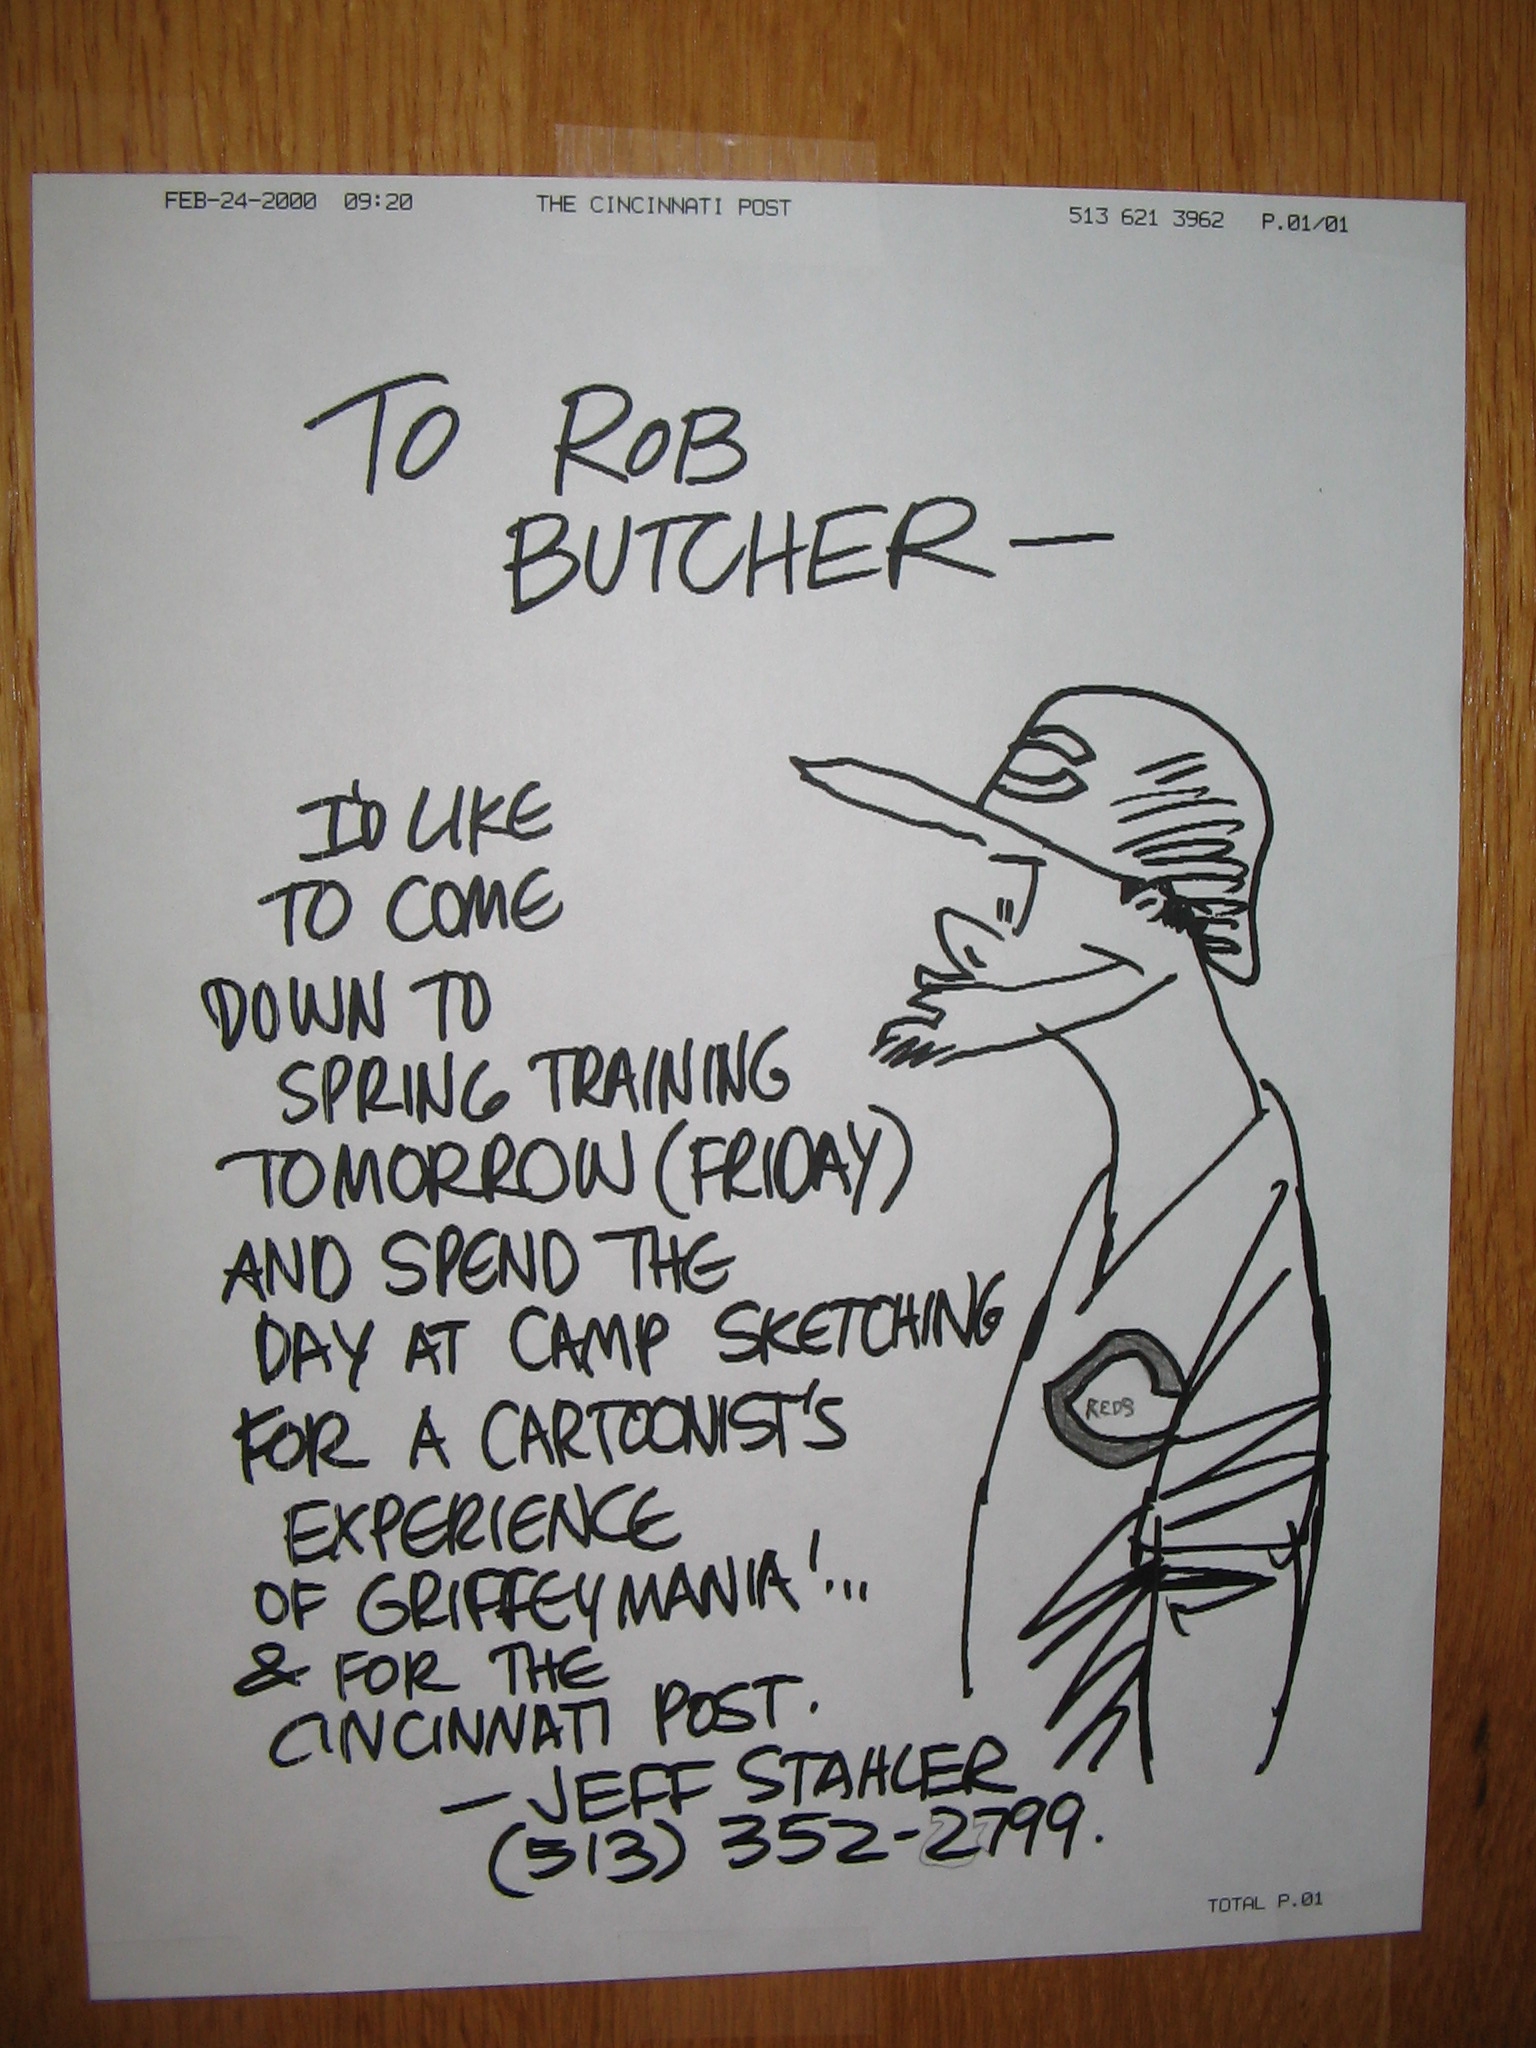 FEB-24-2000 09:20 THE CINCINNATI POST 513 621 3962 P.01/01
TO ROB
BUTCHER —
I'D LIKE
TO COME
DOWN TO
SPRING TRAINING
TOMORROW (FRIDAY)
AND SPEND THE
DAY AT CAMP SKETCHING
FOR A CARTOONIST'S
EXPERIENCE
OF GRIFFEYMANIA!...
& FOR THE
CINCINNATI POST.
— JEFF STAHLER
(513) 352-2799.
C
C REDS
TOTAL P.01